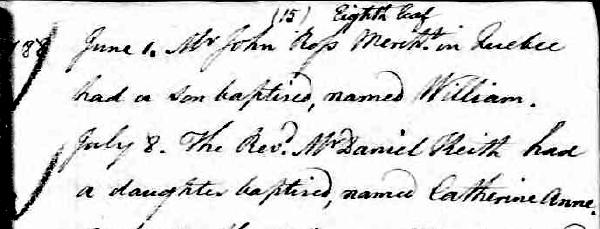 (15) Eighth Leaf
June 1. Mr John Ross Mercht. in Quebec
had a son baptised, named William.
July 8. The Revd. Mr Daniel Keith had
a daughter baptised, named Catherine Anne.